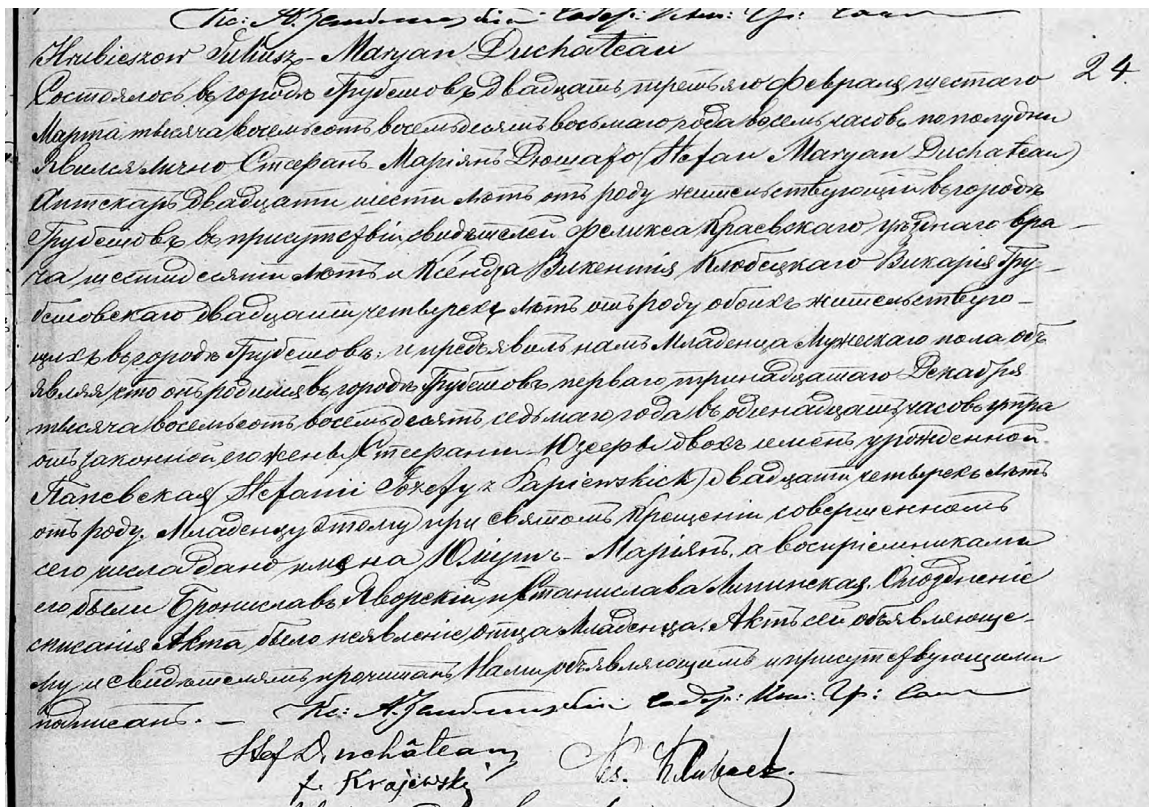 Hrubieszow Juliusz-Maryan Duchateau
24.
Состоялось въ городѣ Грубешовѣ двадцать третьяго Февраля шестаго
Марта тысяча восемьсотъ восемьдесятъ восьмаго года восемь часовъ по полудни
Явился лично Стефанъ Маріянъ Дюшато (Stefan Maryan Duchateau)
Аптекарь двадцати шести лѣтъ отъ роду жительствующій въ городѣ
Грубешовѣ въ присутствіи свидѣтелей Феликса Краевскаго уѣзднаго вра-
ча шестидесяти лѣтъ и Ксендза Викентія Викарія Гру-
бешовскаго двадцати четырехъ лѣтъ отъ роду обоихъ жительствую-
щихъ въ городѣ Грубешовѣ: и предъявилъ намъ Младенца Мужескаго пола, объ
являя, что онъ родился въ городѣ Грубешовѣ перваго, тринадцатаго Декабря
тысяча восемьсотъ восемьдесятъ седьмаго года въ часовъ утра
отъ законной его жены Стефаніи-Юзефы двохъ именъ, урожденной
Папевская (Stefanii Józefy z Papiewskich) двадцати четырехъ лѣтъ
отъ роду. Младенцу этому при святомъ крещеніи совершенномъ
сего числа дано имена Юліушъ-Маріянъ, а воспріемниками
его были Брониславъ Яворскій и Станислава Липинская. Опозданіе
списанія Акта было неявленіе отца Младенца. Актъ сей объявляюще-
му и свидѣтелямъ прочитанъ Нами, объявляющимъ и присутствующими
подписанъ. —
Stef Duchâteau
f. Krajewski
Ks.